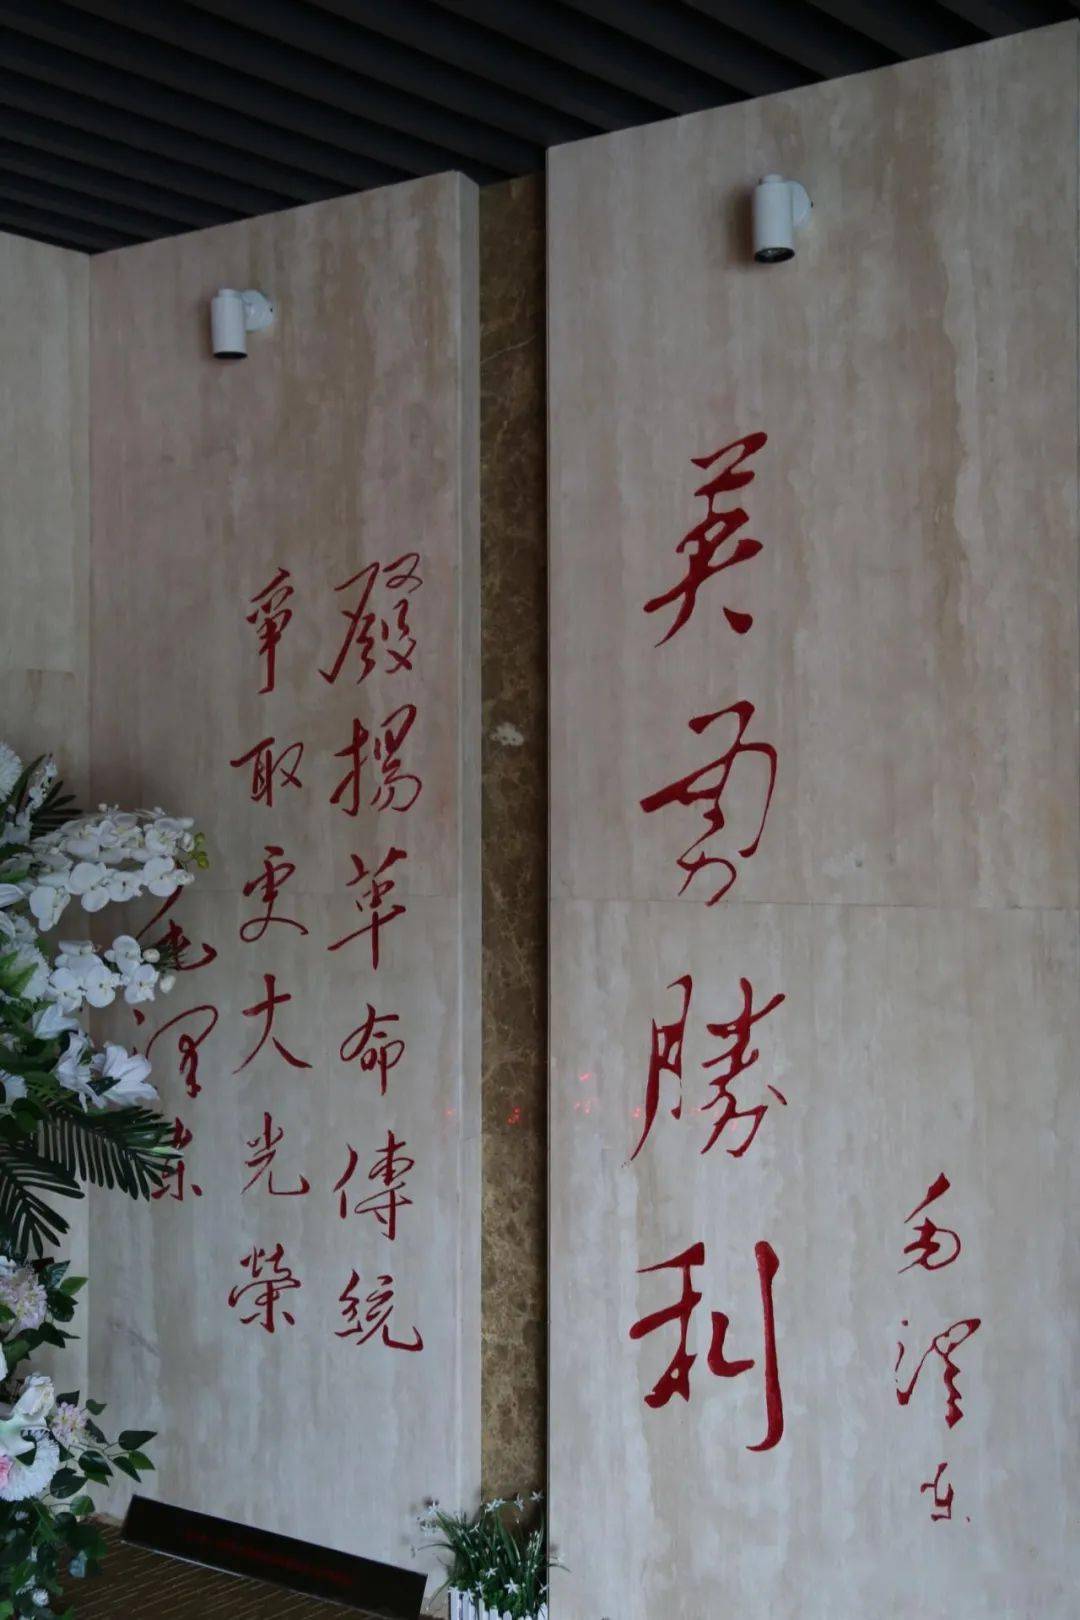 發揚革命傳統
爭取更大光榮
毛澤東
英勇勝利
毛澤東